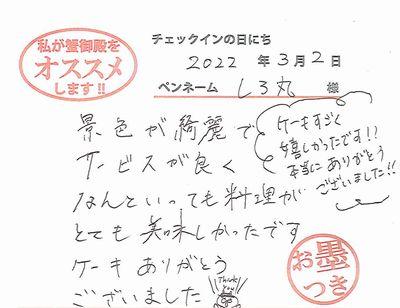 私が蟹御殿を
オススメ
します!!
チェックインの日にち
2022 年 3 月 2 日
ペンネーム しろ丸 様
景色が綺麗で
サービスが良く
なんといっても料理が
とても美味しかったです
ケーキありがとう
ございました
ケーキもすごく
嬉しかったです!!
本当にありがとう
ございました!!
Thank
you
お墨
つき